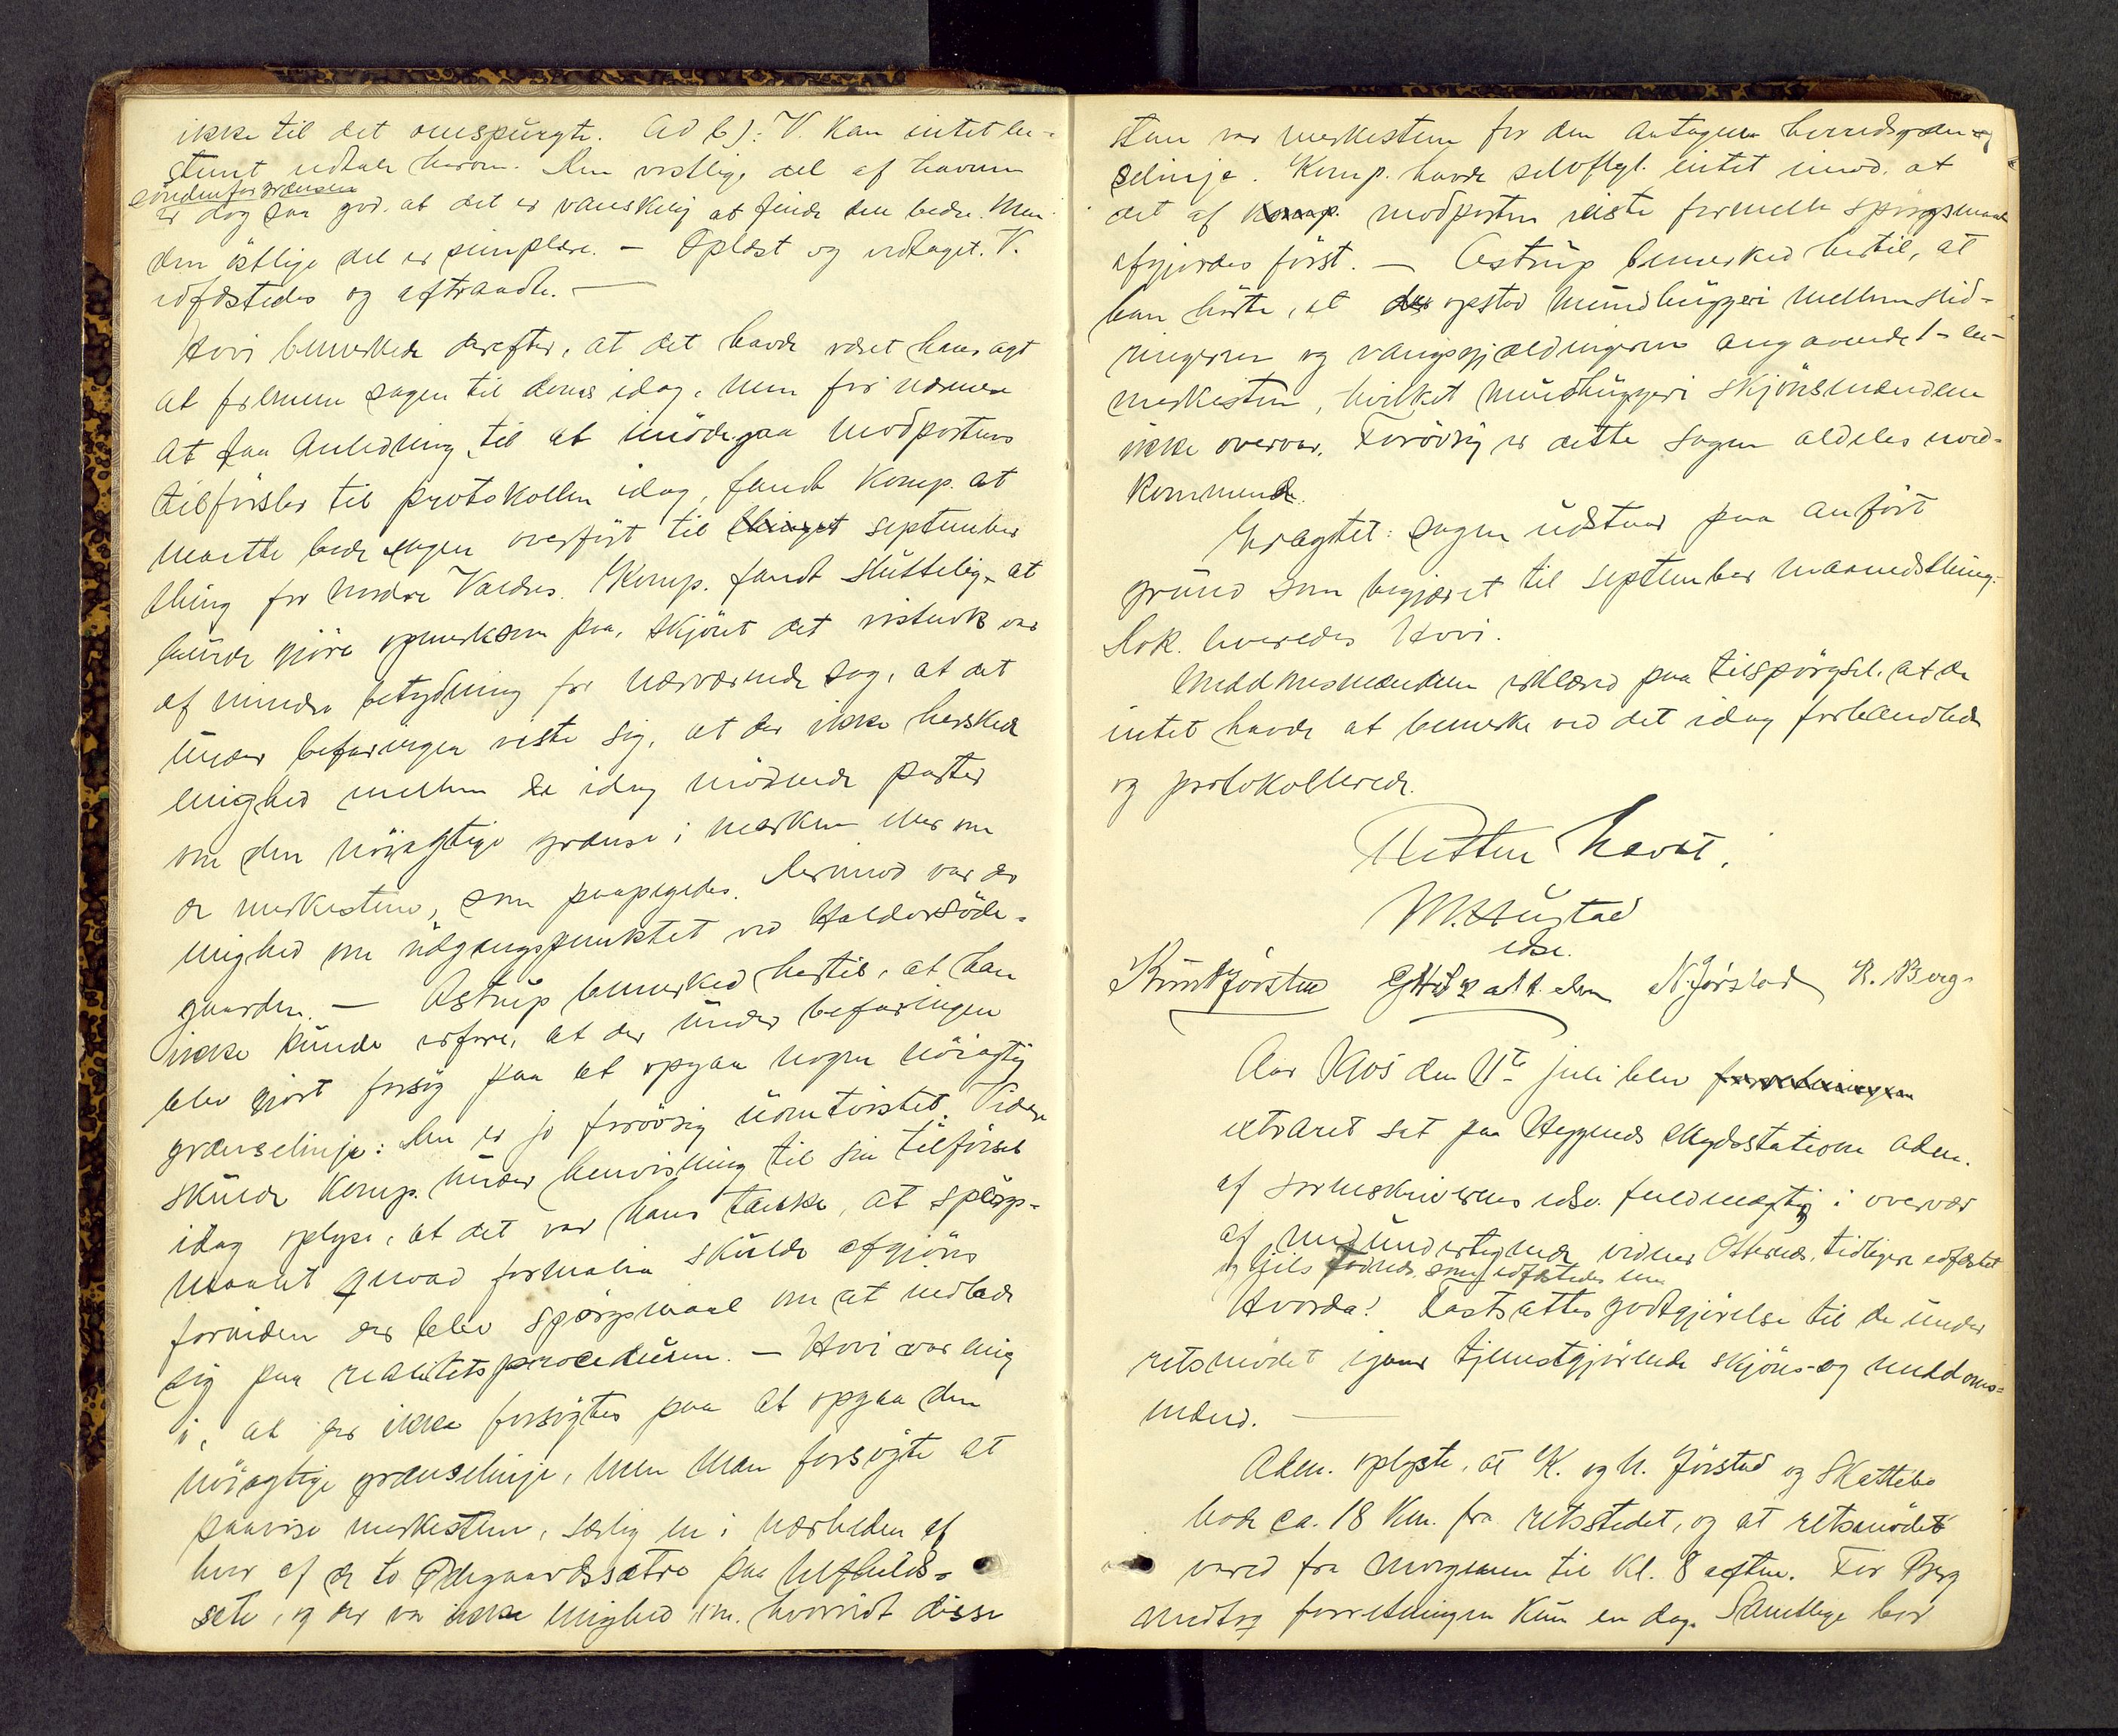 ikke til det omspurgte. Ad 6): V. kan intet be-
stemt udtale herom. Den vestlige del af havnen
søndenfor grænsen
er dog saa god, at det er vanskelig at finde den bedre. Men
den østlige del er simplere. — Oplæst og vedtaget. V.
edfæstedes og aftraadte. —
Hovi bemerkede derefter, at det havde været hans agt
at fremme sagen til doms idag, men for nærmere
at faa anledning til at imødegaa modpartens
tilførsler til protokollen idag, fandt komp. at
maatte bede sagen overført til thinget september
thing for nordre Valdres. Komp. fandt sluttelig at
burde gjøre opmerksom paa, skjønt det vistnok var
af mindre betydning for nærværende sag, at det
under befaringen viste sig, at der ikke herskede
enighed mellem de idag mødende parter
om den nøiagtige grænse i marken eller om
de merkestene, som paapegedes. Derimod var der
enighed om udgangspunktet ved Haldorsøde-
gaarden. — Astrup bemerked hertil, at han
ikke kunde erfare, at der under befaringen
blev gjort forsøg paa at opgaa nogen nøiagtig
grænselinje: Den er jo forøvrig uomtvistet. Videre
skulde komp. under henvisning til sin tilførsel
idag oplyse, at det var hans tanke, at spørgs-
maalet quoad formalia skulde afgjøres
forinden der blev spørgsmaal om at indlade
sig paa realitetsproceduren. — Hovi var enig
i, at der ikke forsøgtes paa at opgaa den
nøiagtige grænselinje, men man forsøgte at
paavise merkestene, særlig en i nærheden af
hver af de to Ødegaardssætre paa
sete, og der var ikke enighed om, hvorvidt disse
sten var merkestene for den antagne herredsgræn-
selinje. Komp. havde selvfølgl. intet imod, at
det af komp. modparten reiste formelle spørgsmaal
afgjordes først. — Astrup bemerked hertil, at
han hørte, at der opstod mundhuggeri mellem slid-
ringerne og vangsgjældingerne angaaende 1 – en –
merkesten, hvilket mundhuggeri skjønsmændene
ikke overvar. Forøvrig er dette sagen aldeles uved-
kommende.
Eragtet: sagen udstaar paa anført
grund som begjæret til september maanedsthing.
Dok. leveredes Hovi.
Meddomsmændene erklæred paa tilspørgsel, at de
intet havde at bemerke ved det idag forhandlede
og protokollerede.
Retten hævet.
M. Hustad
edsv.
Knut Jørstad N. Jørstad K. Berg
Aar 1905 den 11te juli blev forretningen
extraret sat paa Heggenes skydsstation adm.
af sorenskriverens edsv. fuldmægtig i overvær
af medundertegnede vidner tidligere edfæstet
og Nils som edfæstedes
Hvorda! Fastsattes godtgjørelse til de under
retsmødet igaar tjenestgjørende skjøns- og meddoms-
mænd. —
Adm. oplyste, at K. og N. Jørstad og Skattebo
bode ca. 18 km. fra retsstedet, og at retsmødet
vared fra morgenen til kl. 8 aften. For Berg
medtog forretningen kun en dag. Samtlige bør